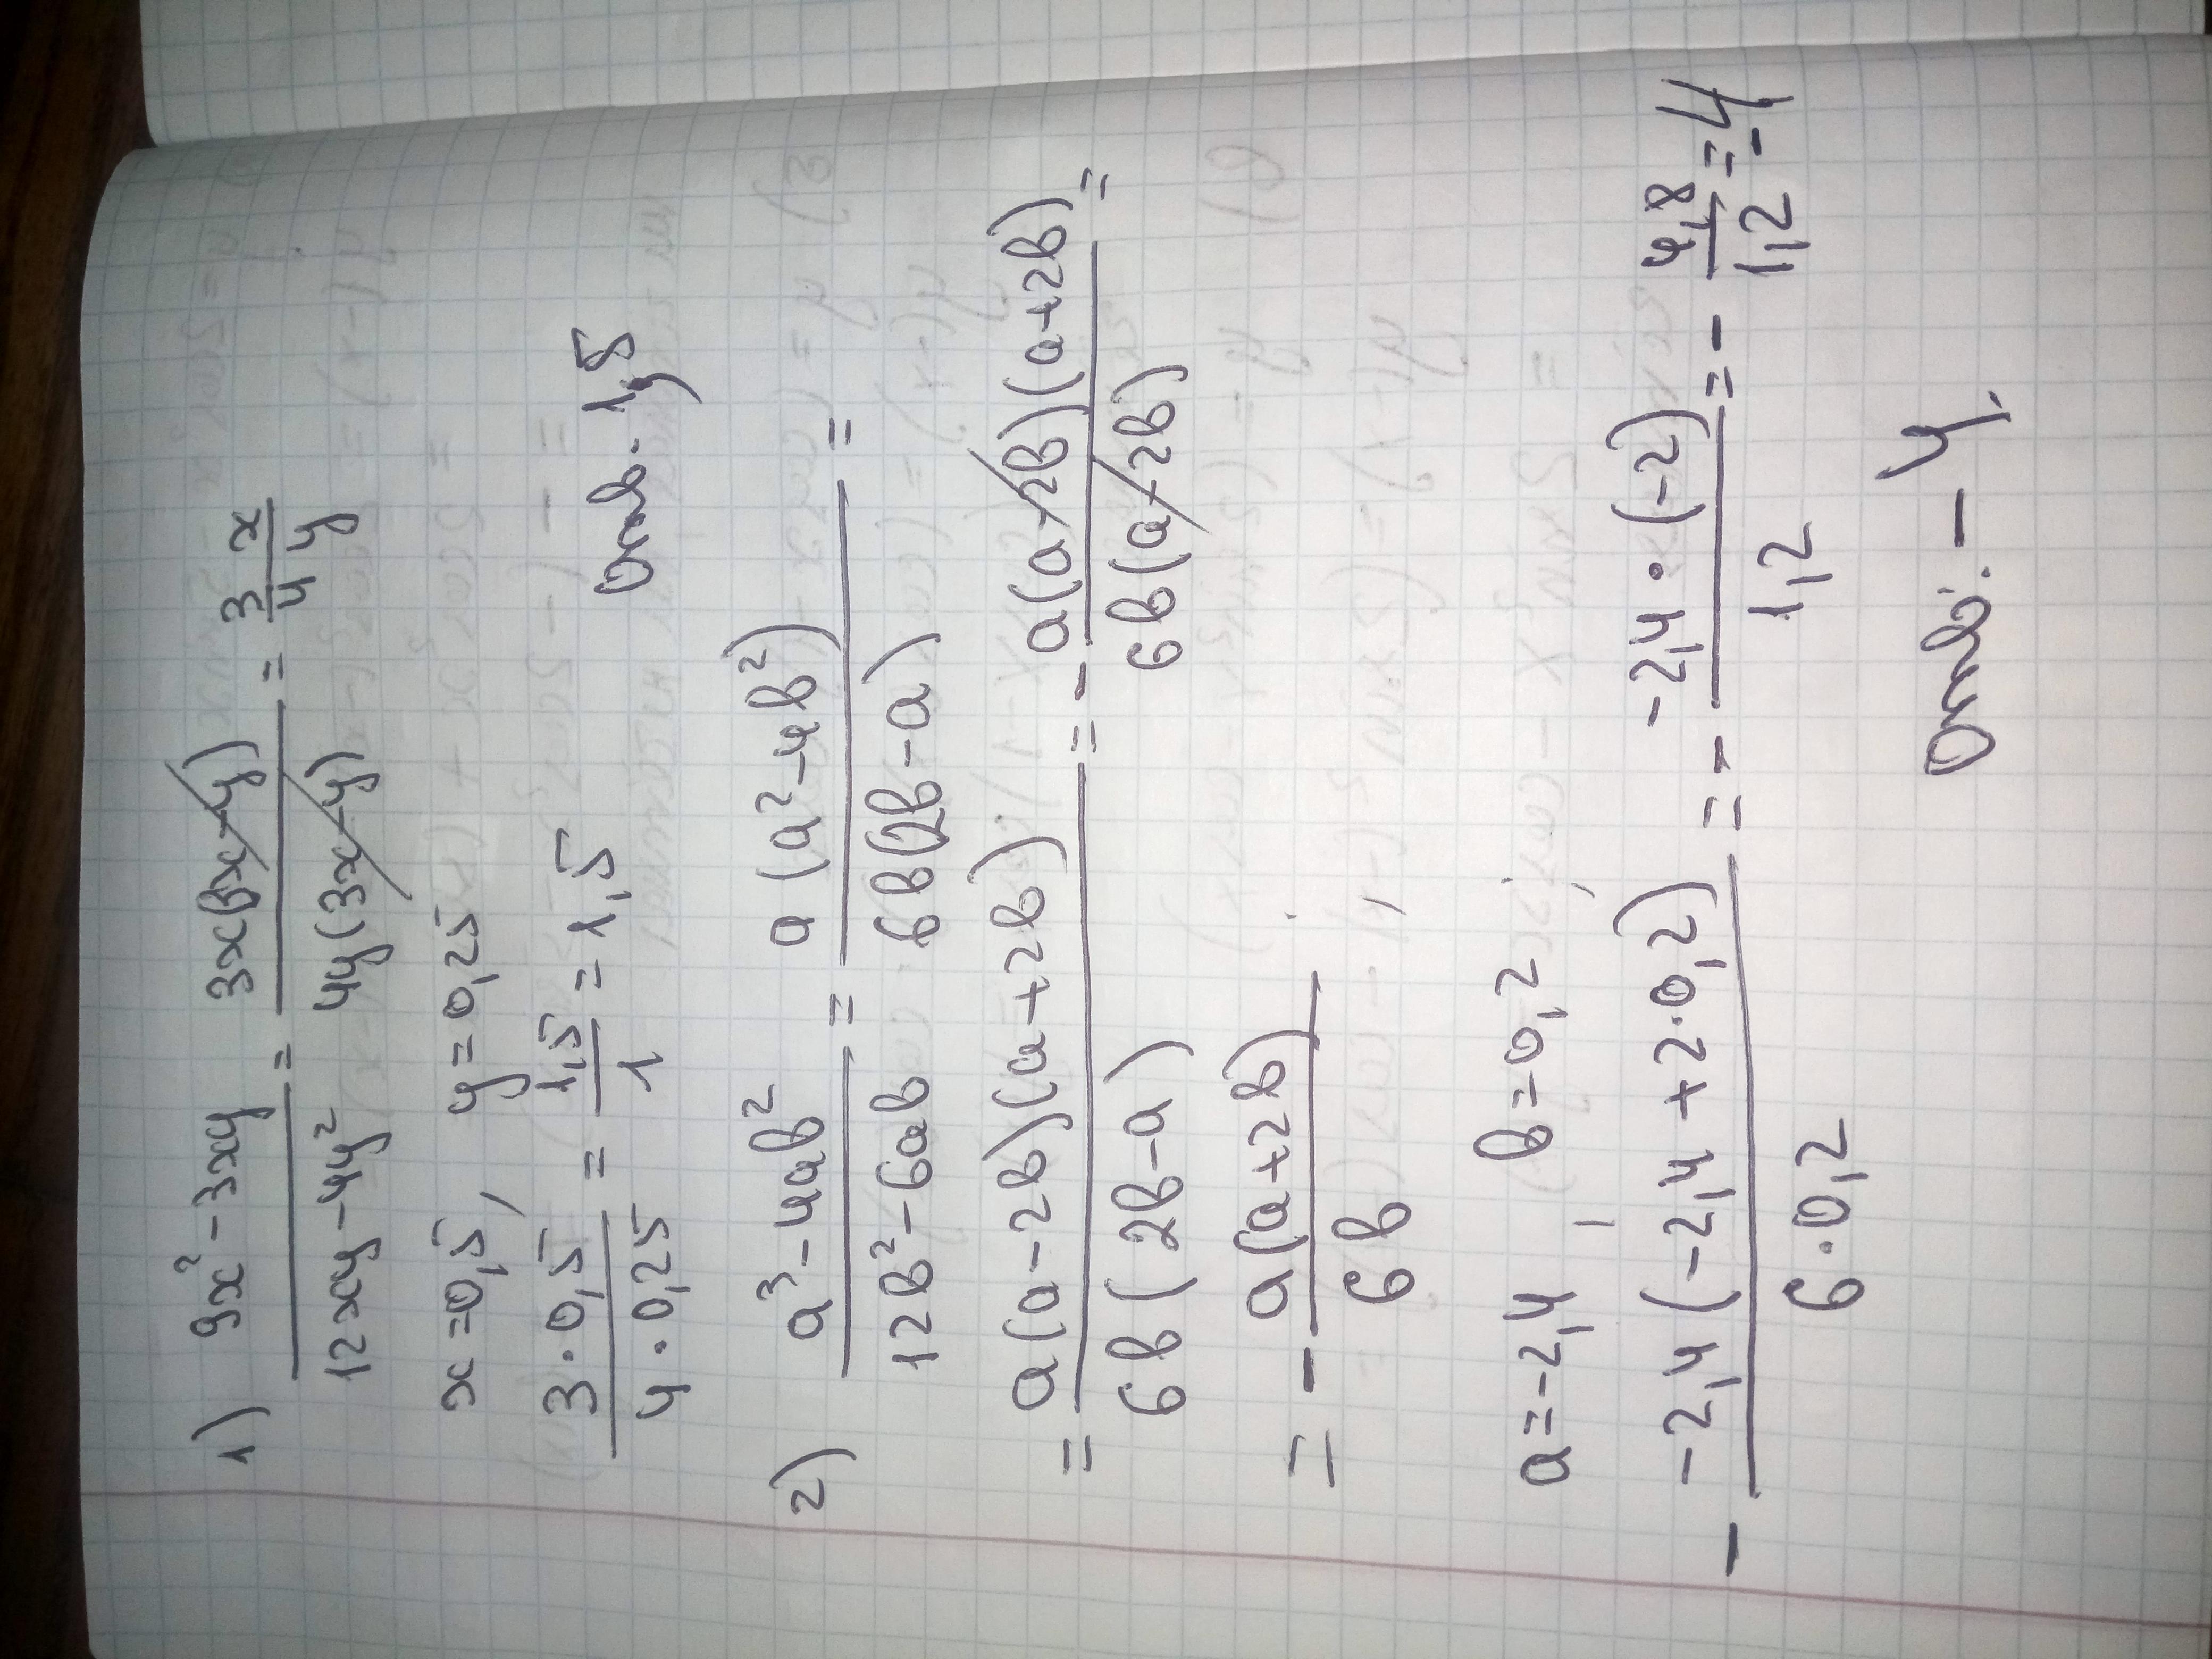 1) (9x² - 3xy)/(12xy - 4y²) = (3x(3x - y))/(4y(3x - y)) = 3/4 x/y
x = 0,5, y = 0,25
(3 · 0,5)/(4 · 0,25) = 1,5/1 = 1,5
Ответ. 1,5
2) (a³ - 4ab²)/(12b² - 6ab) = (a(a² - 4b²))/(6b(2b - a)) =
= (a(a - 2b)(a + 2b))/(6b(2b - a)) = - (a(a - 2b)(a + 2b))/(6b(a - 2b)) =
= - (a(a + 2b))/(6b)
a = -2,4, b = 0,2
- (-2,4(-2,4 + 2 · 0,2))/(6 · 0,2) = - (-2,4 · (-2))/(1,2) = - 4,8/1,2 = -4
Ответ: -4.